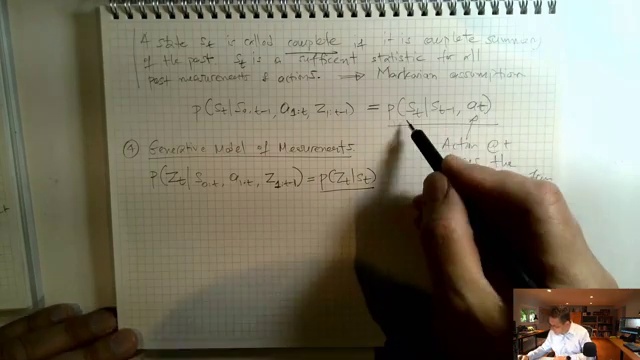 A state St is called complete if it is complete summary
of the past St is a sufficient statistic for all
past measurements & actions. ⟹ Markovian assumption
p(St | S0:t-1, a1:t, Z1:t-1) = p(St | St-1, at)
④ Generative Model of Measurements
Action @ t
the
p(Zt | S0:t, a1:t, Z1:t-1) = p(Zt | St)
from